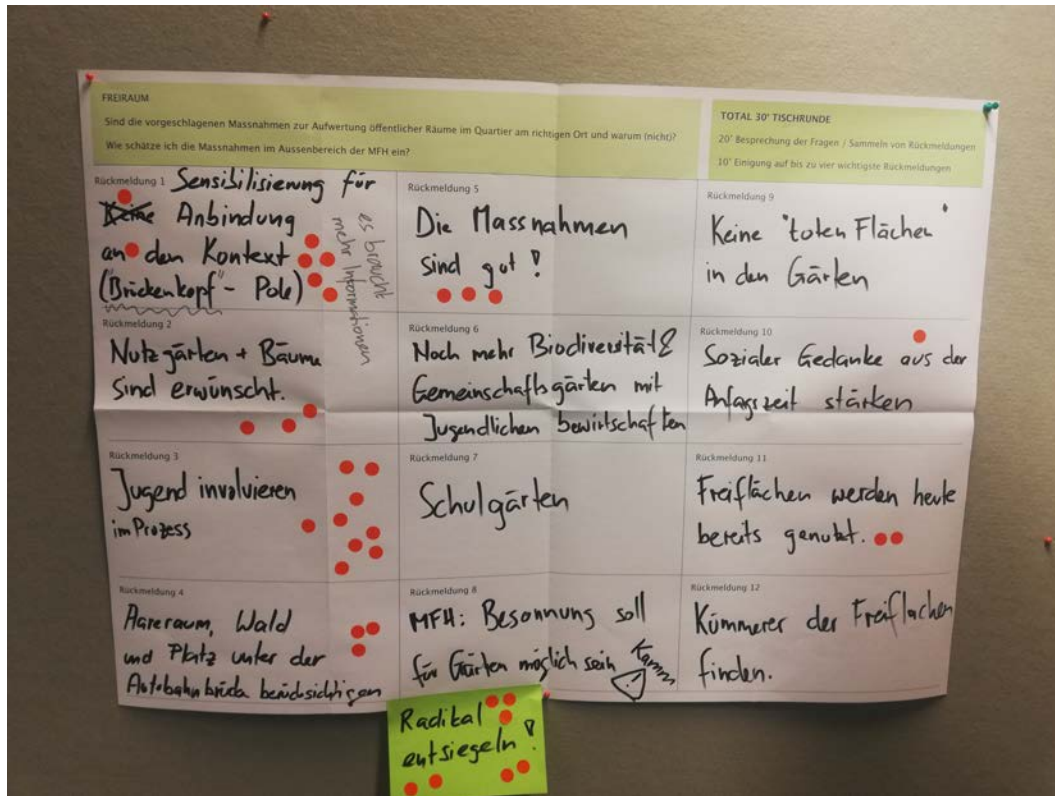 FREIRAUM
Sind die vorgeschlagenen Massnahmen zur Aufwertung öffentlicher Räume im Quartier am richtigen Ort und warum (nicht)?
Wie schätze ich die Massnahmen im Aussenbereich der MFH ein?
TOTAL 30' TISCHRUNDE
20' Besprechung der Fragen / Sammeln von Rückmeldungen
10' Einigung auf bis zu vier wichtigste Rückmeldungen
Rückmeldung 1
Sensibilisierung für
Keine Anbindung
an den Kontext
("Brückenkopf"- Pole)
es braucht
mehr Informationen
Rückmeldung 2
Nutzgärten + Bäume
sind erwünscht.
Rückmeldung 3
Jugend involvieren
im Prozess
Rückmeldung 4
Aareraum, Wald
und Platz unter der
Autobahnbrücke berücksichtigen
Rückmeldung 5
Die Massnahmen
sind gut!
Rückmeldung 6
Noch mehr Biodiversität &
Gemeinschaftsgärten mit
Jugendlichen bewirtschaften
Rückmeldung 7
Schulgärten
Rückmeldung 8
MFH: Besonnung soll
für Gärten möglich sein
Radikal
entsiegeln!
Rückmeldung 9
Keine "toten Flächen"
in den Gärten
Rückmeldung 10
Sozialer Gedanke aus der
Anfagszeit stärken
Rückmeldung 11
Freiflächen werden heute
bereits genutzt.
Rückmeldung 12
Kümmerer der Freiflachen
finden.